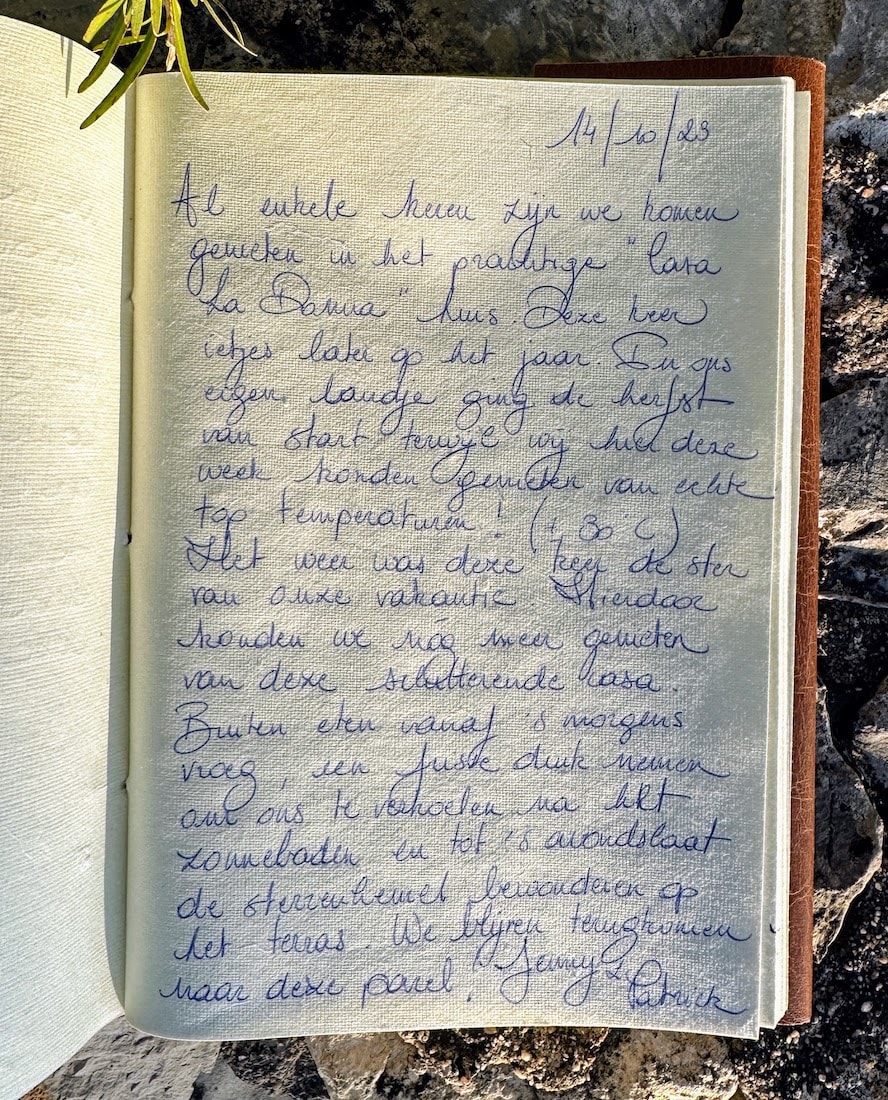 14/10/23
Al enkele keren zijn we komen
genieten in het prachtige "Casa
La Danua" huis. Deze keer
ietsjes later op het jaar. In ons
eigen landje ging de herfst
van start terwijl wij hier deze
week konden genieten van echte
top temperaturen! (± 30°C)
Het weer was deze keer de ster
van onze vakantie. Hierdoor
konden we nóg meer genieten
van deze schitterende casa.
Buiten eten vanaf 's morgens
vroeg, een frisse duik nemen
om ons te verkoelen na het
zonnebaden en tot 's avondslaat
de sterrenhemel bewonderen op
het terras. We blijven terugkomen
naar deze parel! Jenny &
Patrick